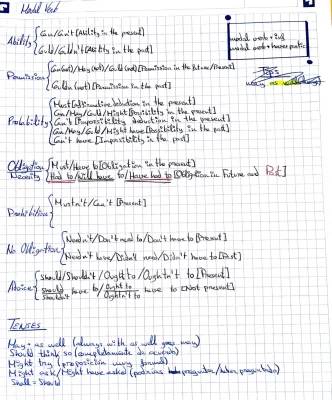 Modal Verb
modal verb + inf
modal verb + have + partic
Ability
Can/Can't [Ability in the present]
Could/Couldn't [Ability in the past]
Permission
[Permission in the future/Present]
[Permission in the past]
Probability
Must [Affirmative deduction in the present]
Can/May/Could/Might [Possibility in the present]
Can't [Impossibility deduction in the present]
Can/May/Could/Might have [Possibility in the past]
Can't have [Impossibility in the past]
Obligation
Necesity
Must/Have to [Obligation in the present]
Had to/Will have to/Have had to [Obligation in Future and Past]
Prohibition
Mustn't/Can't [Present]
No Obligation
Needn't/Don't need to/Don't have to [Present]
Needn't have/Didn't need/Didn't have to [Past]
Advice
Should/Shouldn't/Ought to/Oughtn't to [Present]
Should
Shouldn't
have to/
Ought to
Oughtn't to
have to [Not present]
TENSES
May + as well (always with as well goes may)
Should think so (completamente de acuerdo)
Might try (proposicion muy formal)
Might ask/Might have asked (podrias preguntar/haber preguntado)
Shall = Should